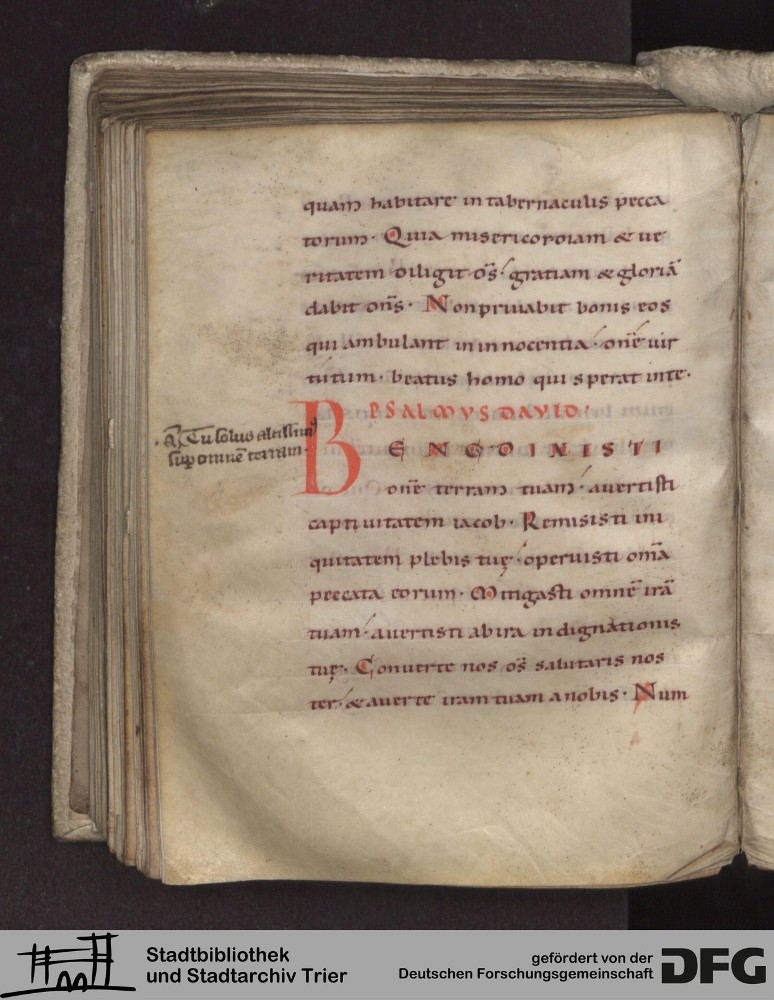 quam habitare in tabernaculis pecca
torum · Quia misericordiam & ve
ritatem diligit d̄s · gratiam & gloriā
dabit dn̄s · Non priuabit bonis eos
qui ambulant in innocentia · dn̄e uir
tutum · beatus homo qui sperat in te ·
PSALMVS DAVID ·
BENEDIXISTI
dn̄e terram tuam · auertisti
captiuitatem iacob · Remisisti ini
quitatem plebis tuę · operuisti om̄a
peccata eorum · Mitigasti omnē irā
tuam · auertisti ab ira indignationis
tuę · Conuerte nos d̄s salutaris nos
ter · & auerte iram tuam a nobis · Num
· ā Tu solus altissimꝰ
suꝑ omnē terram ·
Stadtbibliothek
und Stadtarchiv Trier
gefördert von der
Deutschen Forschungsgemeinschaft
DFG